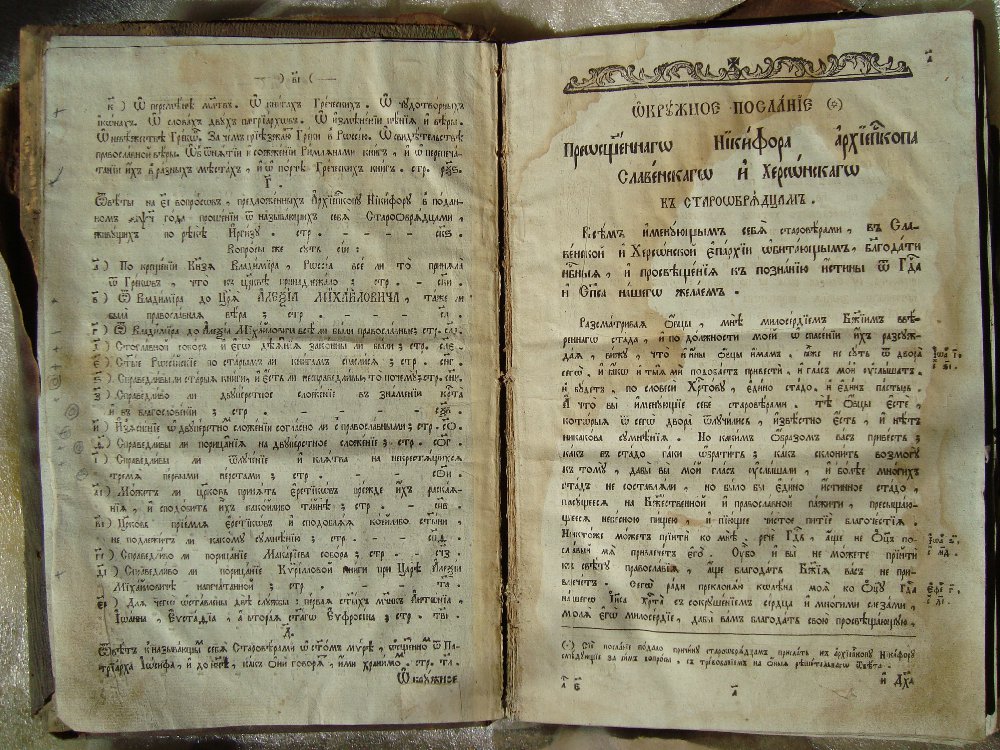 к҃ ) Ѿ перемѣнѣ мл҃твъ. Ѿ книгахъ Греческихъ. Ѿ чудотворныхъ
їкѡнахъ. Ѿ словахъ двухъ патрїархѡвъ. Ѿ измѣненїи чтенїя и вѣры.
Ѿ невѣжествѣ Грекѡвъ. За чемъ прїезжаютъ Греки в Рѡссїю. Ѿ свидѣтельствѣ
православной вѣры. Ѿ ѿнятїи и сожженїи Римлянами книгъ, и ѡ перепеча-
танїи ихъ в разныхъ мѣстахъ, и ѡ портѣ Греческихъ книгъ. стр.
Г҃.
Ѿвѣты на є҃і вопросѡвъ, предложенныхъ Архїепкопу Никифору в подан-
номъ года прошенїи ѿ называющихъ себя Старообрядцами,
живущихъ по рѣкѣ Иргизу. стр.
Вопросы же суть сїи:
а҃ ) По крещенїи Князя Владимїра, Рѡссїа все ли то прїяла
ѿ Грекѡвъ, что къ цр҃квѣ принадлежало; стр.
в҃ ) Ѿ Владимїра до Царя АЛЕѮІА МИХАИЛОВИЧА, таже ли
была православная вѣра; стр.
г҃ ) Ѿ Владимїра до Алеѯїа Михайловича всѣ ли были православны; стр.
д҃ ) Стоглавной соборъ и егѡ дѣянїя законны ли были; стр.
є҃ ) Ст҃ые Рѡссїйскїе по старымъ ли книгамъ спаслися; стр.
ѕ҃ ) Справедливы ли старыя книги, и есть ли несправедливы, то почему; стр.
з҃ ) Справедливо ли двуперстное сложенїе въ знаменїи крⷭ҇та
и въ благословенїи; стр.
и҃ ) Изѧсненїе ѡ двуперстномъ сложенїи согласно ли с православными; стр.
ѳ҃ ) Справедливы ли порицанїя на двуперстное сложенїе; стр.
і҃ ) Справедливы ли ѿлученїе и клятва на некрестящихся
тремя первыми перстами; стр.
а҃і ) Можетъ ли цр҃ковь принять еретикѡвъ прежде ихъ раская-
нїя, и сподобить ихъ какой либо тайнѣ; стр.
в҃і ) Цр҃ковь прїемля еретикѡвъ и сподобляя коей либо ст҃ыни,
не подлежитъ ли какому сумнѣнїю; стр.
г҃і ) Справедливо ли порицанїе Макарїева собора; стр.
д҃і ) Справедливо ли порицанїе Кѵрїлловой книги при Царѣ Алеѯїи
Михайловичѣ напечатанной; стр.
є҃і ) Для чегѡ ѡставлены двѣ службы; первая ст҃ыхъ мч҃нкъ Антѡнїа,
Їѡанна, Еѵстаѳїа, а вторая ст҃агѡ Еѵфросина; стр.
Д҃.
Ѿвѣтъ к называющымъ себя Старовѣрами ѡ ст҃омъ мѵрѣ, ѡсщ҃енно ѿ Па-
трїарха Їѡсифа, и до нн҃ѣ, какъ они говорятъ, ими хранимо. стр.
Ѡкружное
а҃
ѠКРУЖНОЕ ПОСЛАНІЕ (*)
Преосщ҃еннагѡ Никифора Архїепⷭ҇копа
Славенскагѡ и Херсѡнскагѡ
къ старообрядцамъ.
Всѣмъ именующымъ себя старовѣрами, въ Сла-
венской и Херсѡнской Епархїи ѡбитающымъ, благодати
нбⷭ҇ныя, и просвѣщенїя къ познанїю истины ѿ Гдⷭ҇а
и Сп҃са нашегѡ желаемъ.
Разсматривая Ѻвцы, мнѣ милосердїемъ Бж҃їимъ ввѣ-
реннагѡ стада, и по должности моей ѡ спасенїи ихъ разсуж-
дая, вижу, что и ины овцы имамъ, яже не суть ѿ двора
сегѡ, и якѡ и тыя ми подобаетъ привести, и гласъ мой услышатъ
и будетъ, по словеси Хрⷭ҇тову, едино стадо, и единъ пастырь.
А что вы именующїе себе старовѣрами, тѣ овцы есте,
которыя ѿ сегѡ двора ѿлучились, извѣстно есть, и нѣтъ
никакова сумнѣнїя. Но какимъ образомъ васъ привесть;
какъ въ стадо паки возвратить; какъ склонить возмогу
къ тому, дабы вы мой гласъ услышали, и болѣе многихъ
стадъ не составляли, но было бы едино истинное стадо,
пасущееся на Бж҃ественной и православной пажити, пресыщаю-
щееся небесною пищею, и пїющее чистое питїе благочестїя.
Никтоже можетъ прїити ко мнѣ, рече Гдⷭ҇ь, аще не Оц҃ъ по-
славый мя привлечетъ его. Убо и вы не можете прїити
къ свѣту православїя, аще благодать Бж҃їя васъ не при-
влечетъ. Сегѡ ради преклоняя кѡлѣна моя ко Оц҃у Гдⷭ҇а
нашегѡ Іи҃са Хрⷭ҇та съ сокрушенїемъ сердца и многими слезами,
моля егѡ милосердїе, дабы вамъ благодать свою просвѣщающую,
Їѡа҃н. і҃.
Їѡа҃н.
Ефе҃с. г҃.
(*) Сїе посланїе подало причину старообрядцамъ прислать къ архїепкопу Никифору
слѣдующїе за симъ вопросы, съ требованїемъ на оныя рѣшительнагѡ ѿвѣта.
и Дх҃а